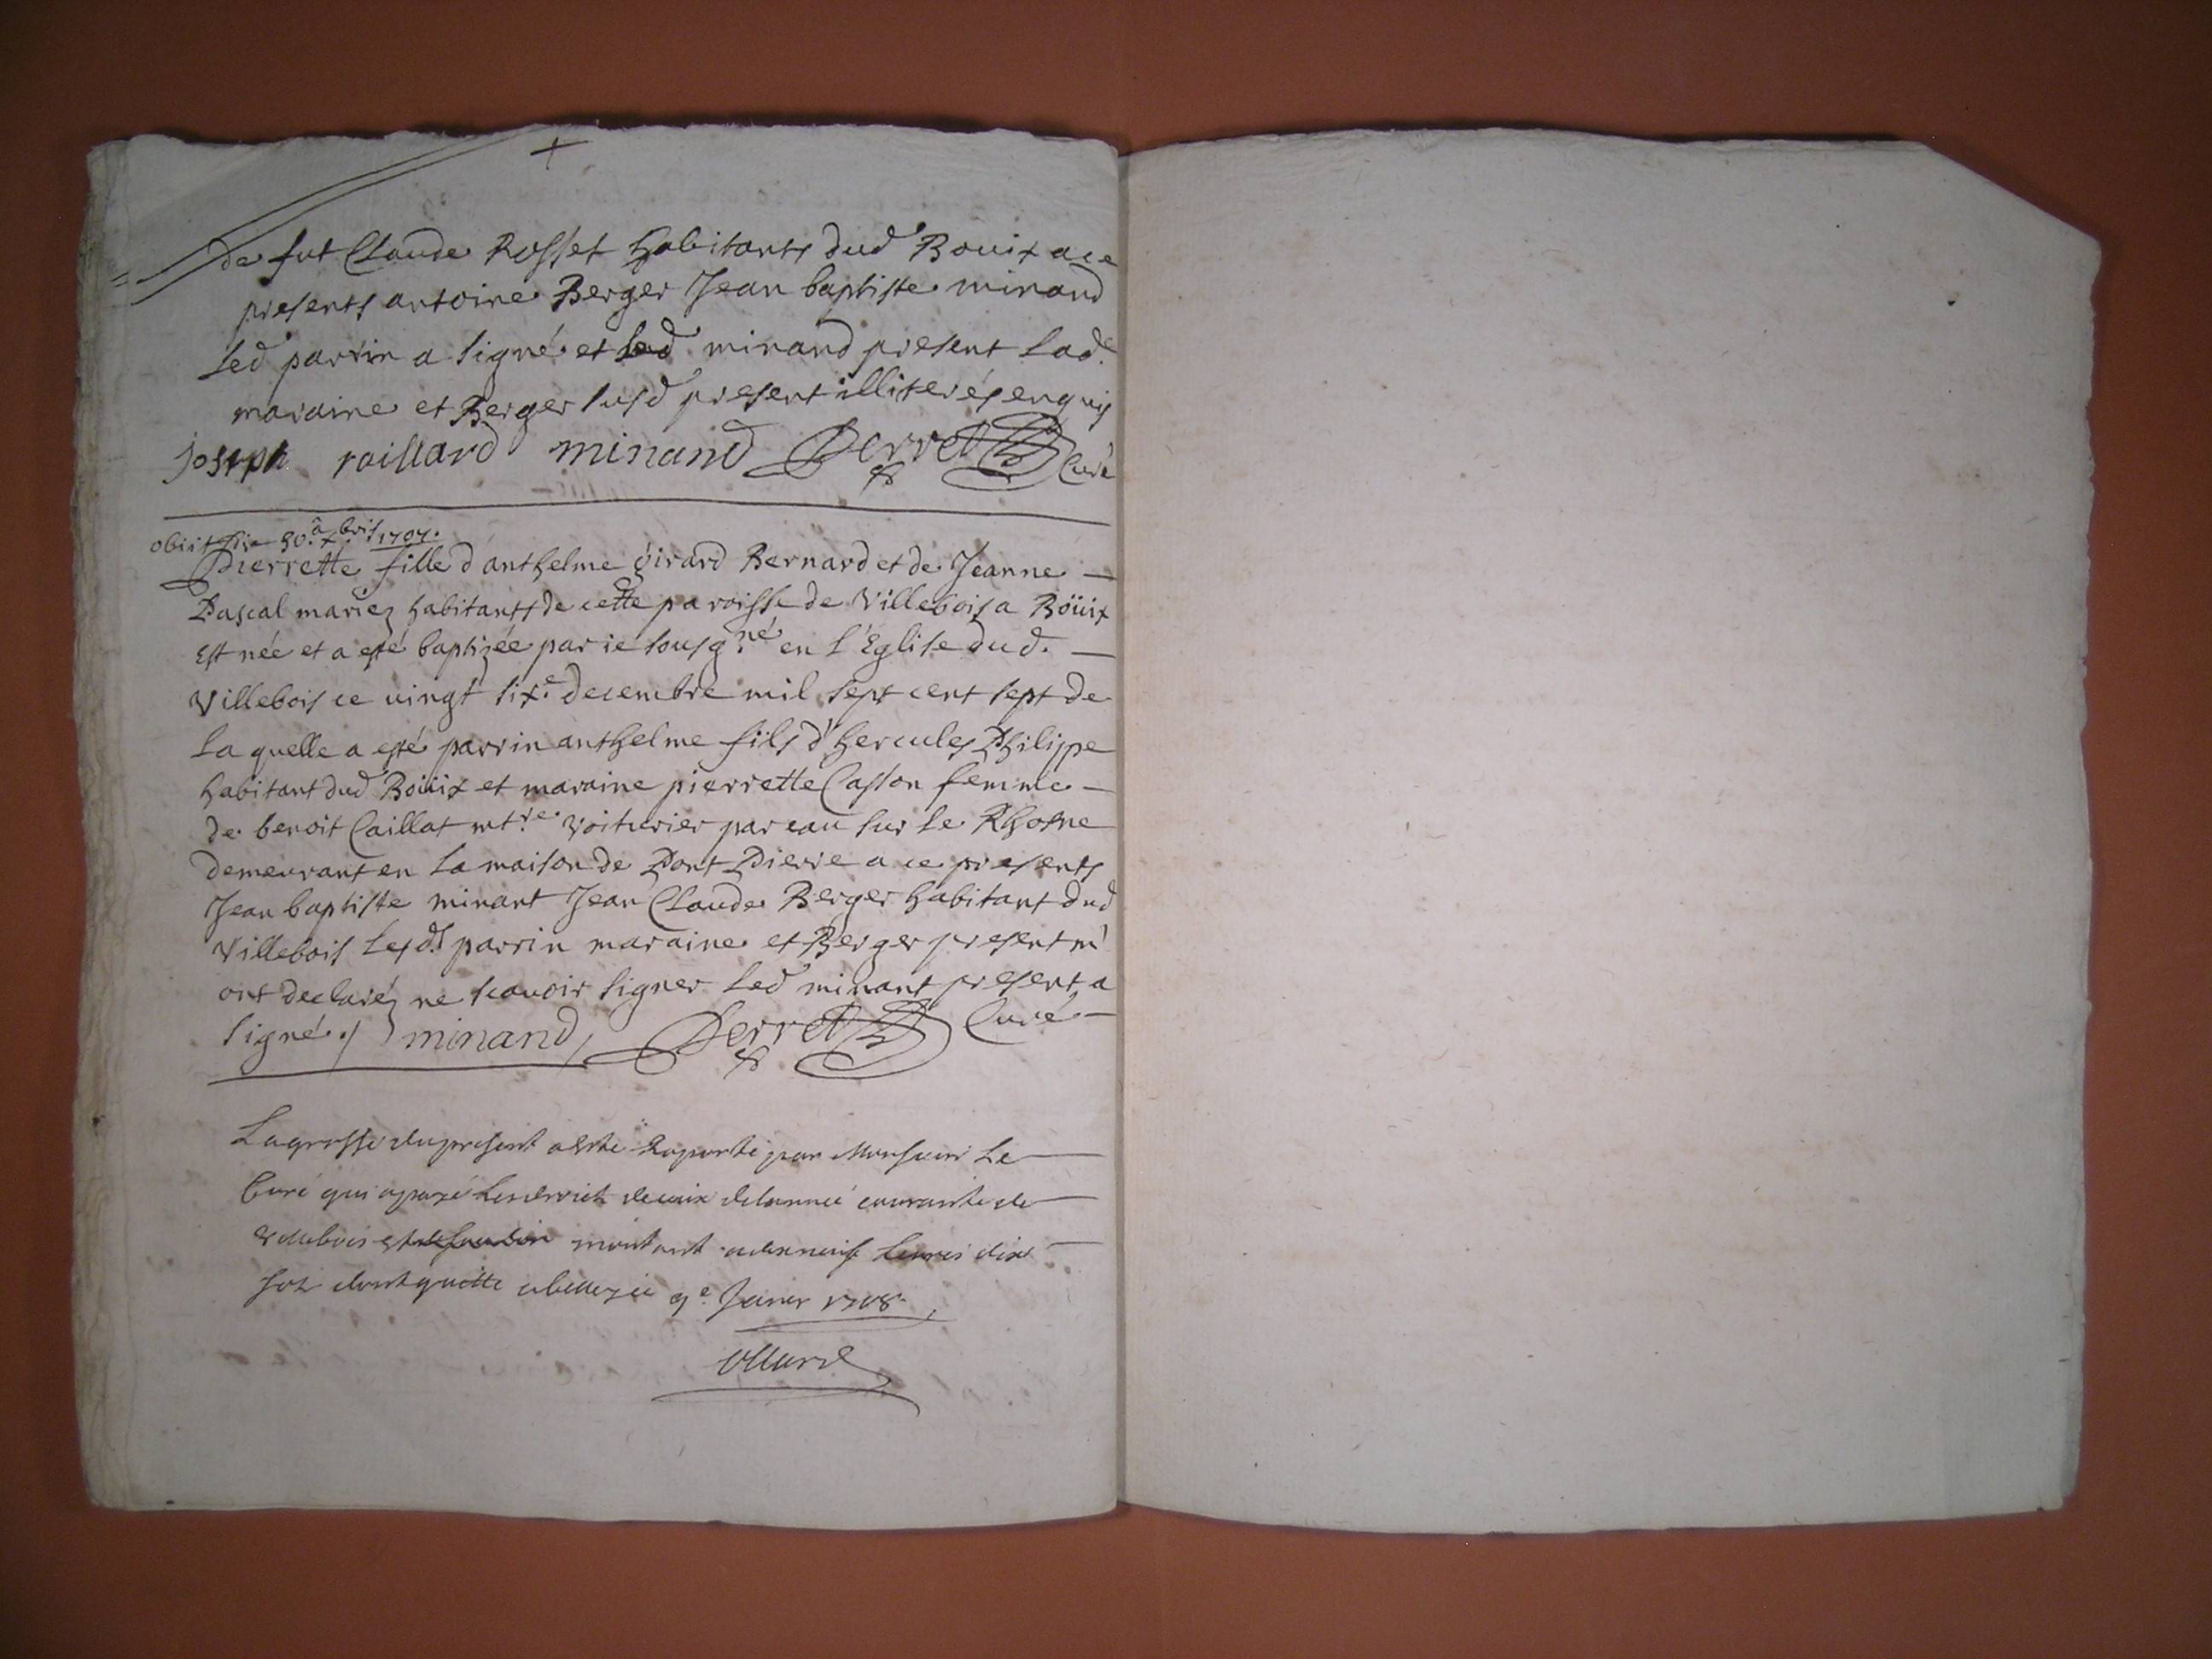 de fut Claude Rosset habitants dud Bouix a ce
presents antoine Berger Jean baptiste minand
led parrin a signé et led minand present lad.e
maraine et Berger susd present illiterés enquis
joseph raillard minand Perret Curé
obiit die 30.a xbris 1707.
Pierrette fille d'anthelme girard Bernard et de Jeanne
Pascal mariez habitants de cette paroisse de Villebois a Boüix
Est née et a esté baptizée par ie sousg.né en l'Eglise dud.
Villebois ce vingt six.e decembre mil sept cent sept de
la quelle a esté parrin anthelme fils d'hercules Philippe
habitant dud Boüix et maraine pierrette Casson femme
de benoit Caillat mt.re voiturier par eau sur le Rhosne
demeurant en la maison de Pont Pierre a ce presents
Jean baptiste minant Jean Claude Berger habitant dud
Villebois les d.s parrin maraine et Berger present m'
ont declaréz ne scavoir signer led minant present a
signé ./ minand Perret Curé
La grosse du present a esté raporté par Monsieur le
Curé qui a payé les droict de lannée courante de
montant a dixneuf livres dix
solz dont quitte a belley ce 9.e Janvier 1708.